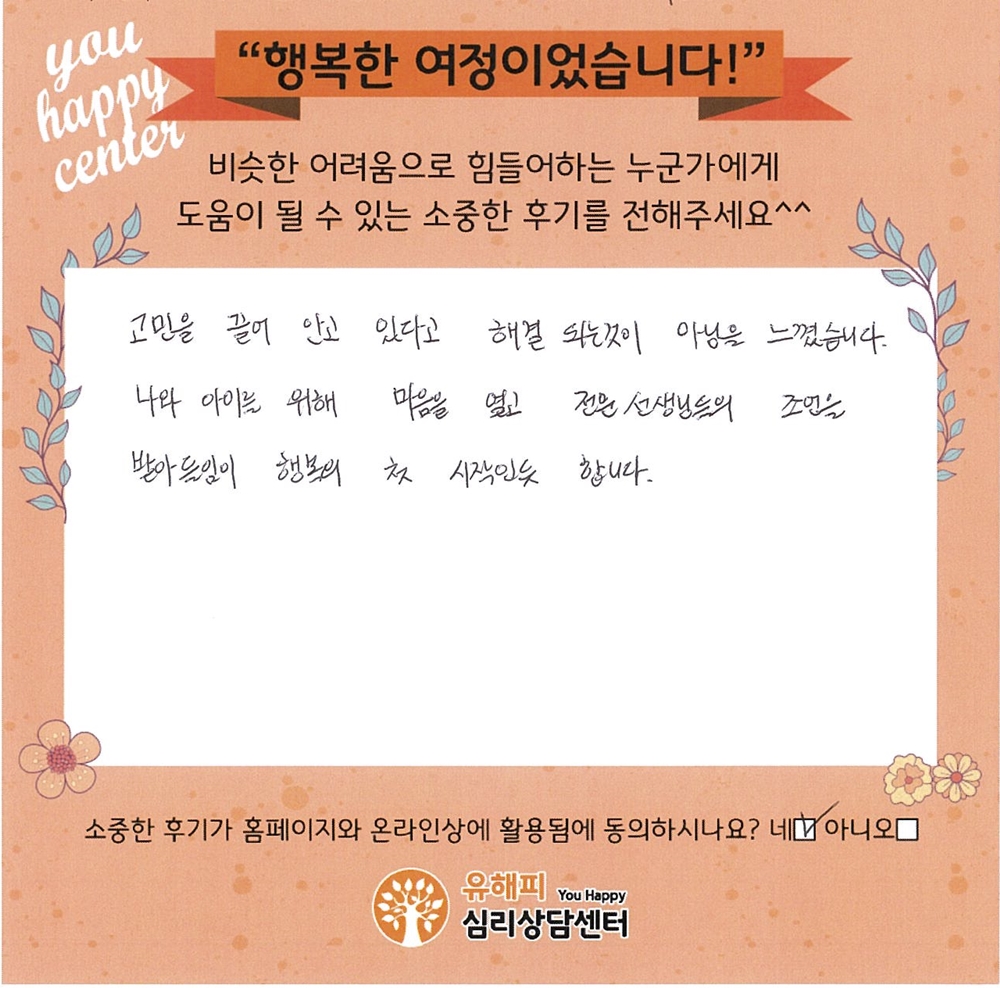 you
happy
center
“행복한 여정이었습니다!”
비슷한 어려움으로 힘들어하는 누군가에게
도움이 될 수 있는 소중한 후기를 전해주세요^^
고민을 끌어 안고 있다고 해결 되는것이 아님을 느꼈습니다.
나와 아이를 위해 마음을 열고 전문 선생님들의 조언을
받아들임이 행복의 첫 시작인듯 합니다.
소중한 후기가 홈페이지와 온라인상에 활용됨에 동의하시나요? 네 아니오
유해피 You Happy
심리상담센터